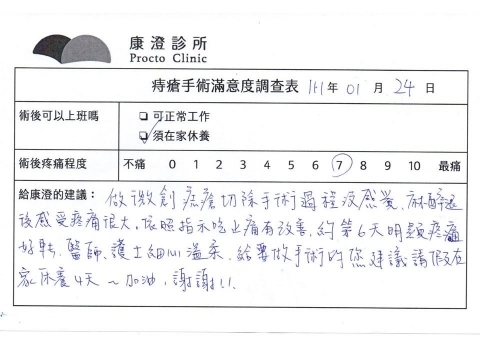 康澄診所
Procto Clinic
痔瘡手術滿意度調查表 111年 01 月 24 日
術後可以上班嗎
□ 可正常工作
☑ 須在家休養
術後疼痛程度 不痛 0 1 2 3 4 5 6 7 8 9 10 最痛
給康澄的建議： 做微創痔瘡切除手術過程沒感覺、麻醉退
後感受疼痛很大，依照指示吃止痛有改善，約第6天明顯疼痛
好轉、醫師、護士細心溫柔，給要做手術的您建議請假在
家休養4天～加油，謝謝!!